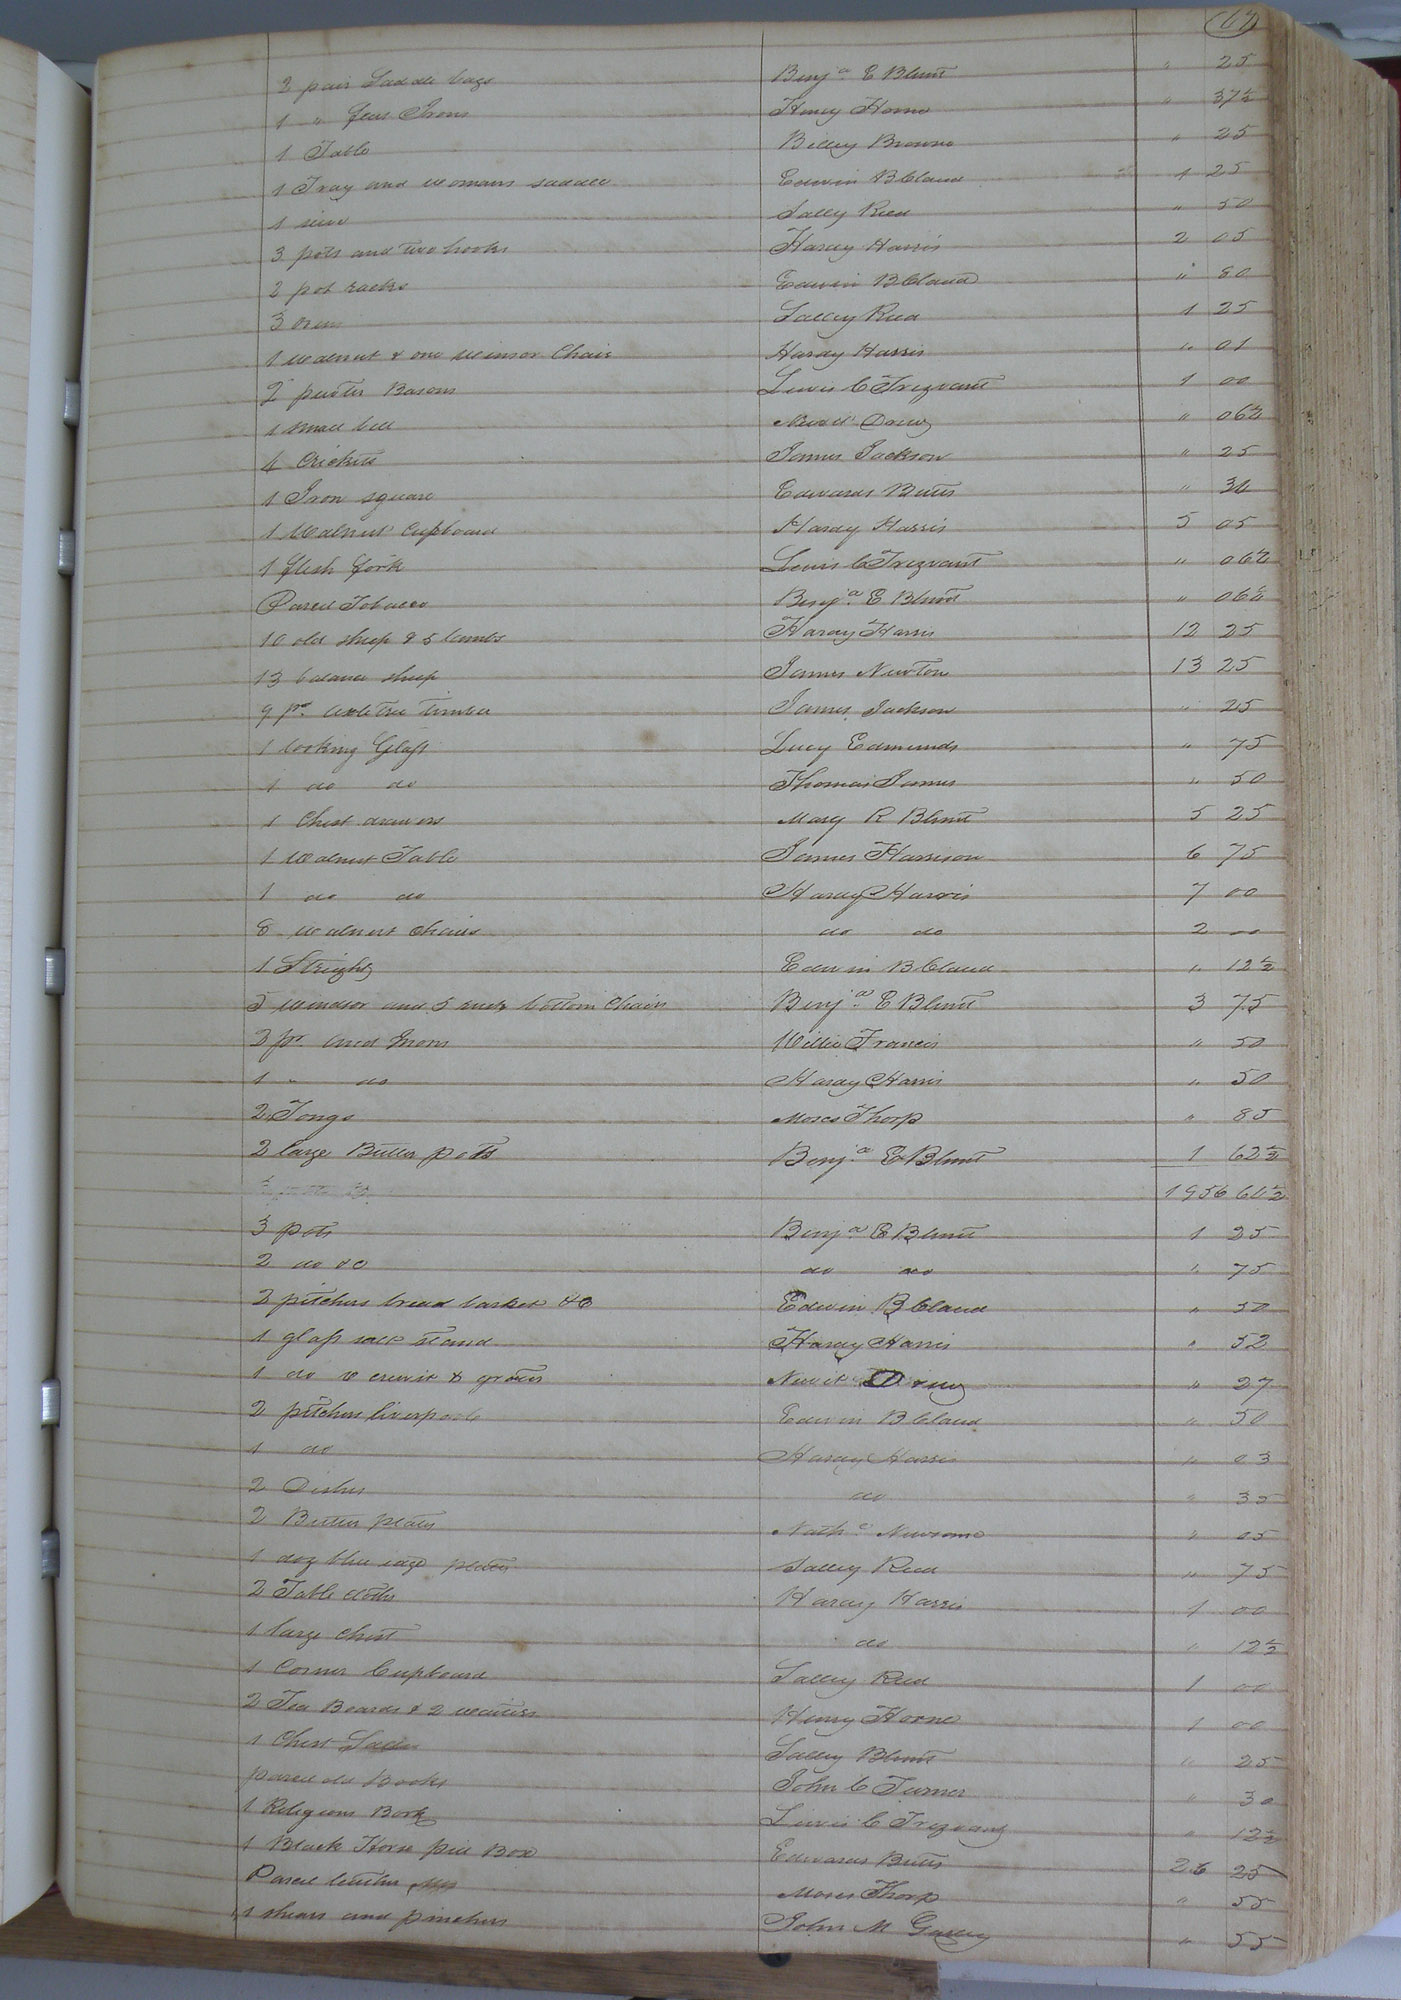 67
2 pair Saddle bags Benja E Blunt " 25
1 " flat Irons Henry Horne " 37½
1 Table Billey Browne " 25
1 Tray and womans saddle Edwin B Claud 1 25
1 sieve Salley Reed " 50
3 pots and two hooks Hardy Harris 2 05
2 pot racks Edwin B Claud " 80
3 oven Salley Reed 1 25
1 walnut & one winsor Chair Hardy Harris " 01
2 pewter Basons Lewis C Trezvant 1 00
1 small bell Newit Drewry " 06¼
4 Crickets James Jackson " 25
1 Iron square Edwards Butts " 31
1 Walnut Cupboard Hardy Harris 5 05
1 flesh fork Lewis C Trezvant " 06¼
Parcel Tobacco Benja E Blunt " 06¼
10 old sheep & 5 lambs Hardy Harris 12 25
13 balance sheep James Newton 13 25
9 pr. axletree timber James Jackson " 25
1 looking Glass Lucy Edmunds " 75
1 do do Thomas James " 50
1 Chest drawers Mary R Blunt 5 25
1 Walnut Table James Harrison 6 75
1 do do Hardy Harris 7 00
8 walnut chairs do do 2 00
1 Edwin B Claud " 12½
5 windsor and 5 bottom Chairs Benja E Blunt 3 75
2 pr. And Irons Willie Francis " 50
1 " do Hardy Harris " 50
2 Tongs Moses Thorp " 85
2 large Butter pots Benja E Blunt 1 62½
1956 61½
3 pots Benja E Blunt 1 25
2 do do do do " 75
2 pitchers bread basket &C Edwin B Claud " 50
1 glass salt stand Hardy Harris " 52
1 do cruit & Newit Drewry " 27
2 pitchers liverpool Edwin B Claud " 50
1 do Hardy Harris " 03
2 Dishes do " 35
2 Butter plates Nathl Newsome " 05
1 doz blue edge plates Salley Reed " 75
2 Table cloths Hardy Harris 1 00
1 large Chest do " 12½
1 Corner Cupboard Salley Reed 1 00
2 Tea Boards & 2 waiters Henry Horne 1 00
1 Chest Salley Blunt " 25
parcel old Books John C Turner " 30
1 Religious Book Lewis C Trezvant " 12½
1 Black Horse Edwards Butts 26 25
Parcel leather Moses Thorp " 55
1 shears and pinchers John M " 55